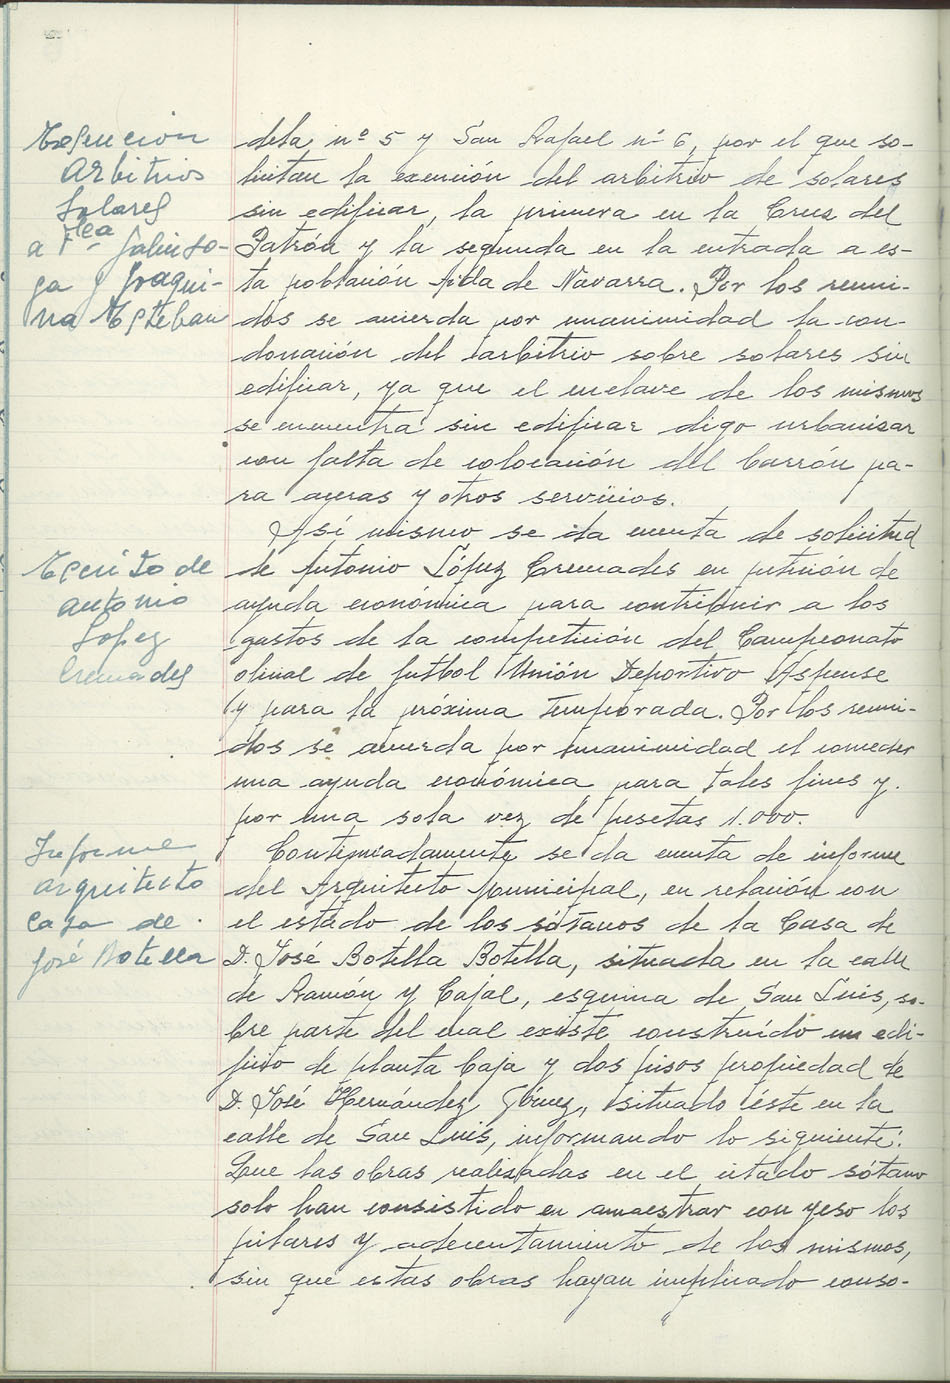 Exención
Arbitrios
Solares
a Fca Galinso-
ga y Joaqui-
na Esteban
dela nº 5 y San Rafael nº 6, por el que so-
licitan la exención del arbitrio de solares
sin edificar, la primera en la Cruz del
Patrón y la segunda en la entrada a es-
ta población Avda de Navarra. Por los reuni-
dos se acuerda por unanimidad la con-
donación del arbitrio sobre solares sin
edificar, ya que el enclave de los mismos
se encuentra sin edificar digo urbanizar
con falta de colocación del barrón pa-
ra aceras y otros servicios.
Así mismo se da cuenta de solicitud
Escrito de
Antonio
Lopez
Cremades
de Antonio López Cremades en petición de
ayuda económica para contribuir a los
gastos de la competición del Campeonato
oficial de futbol Unión Deportivo Aspense
y para la próxima temporada. Por los reuni-
dos se acuerda por unanimidad el conceder
una ayuda económica para tales fines y
por una sola vez de pesetas 1.000.
Informe
arquitecto
casa de
José Botella
Continuadamente se da cuenta de informe
del Arquitecto Municipal, en relación con
el estado de los sótanos de la Casa de
D. José Botella Botella, situada en la calle
de Ramón y Cajal, esquina de San Luis, so-
bre parte del cual existe construído un edi-
ficio de planta baja y dos pisos propiedad de
D. José Hernández Gómez, situado éste en la
calle de San Luis, informando lo siguiente:
Que las obras realizadas en el citado sótano
solo han consistido en amaestrar con yeso los
pilares y adecentamiento de los mismos,
sin que estas obras hayan implicado conso-